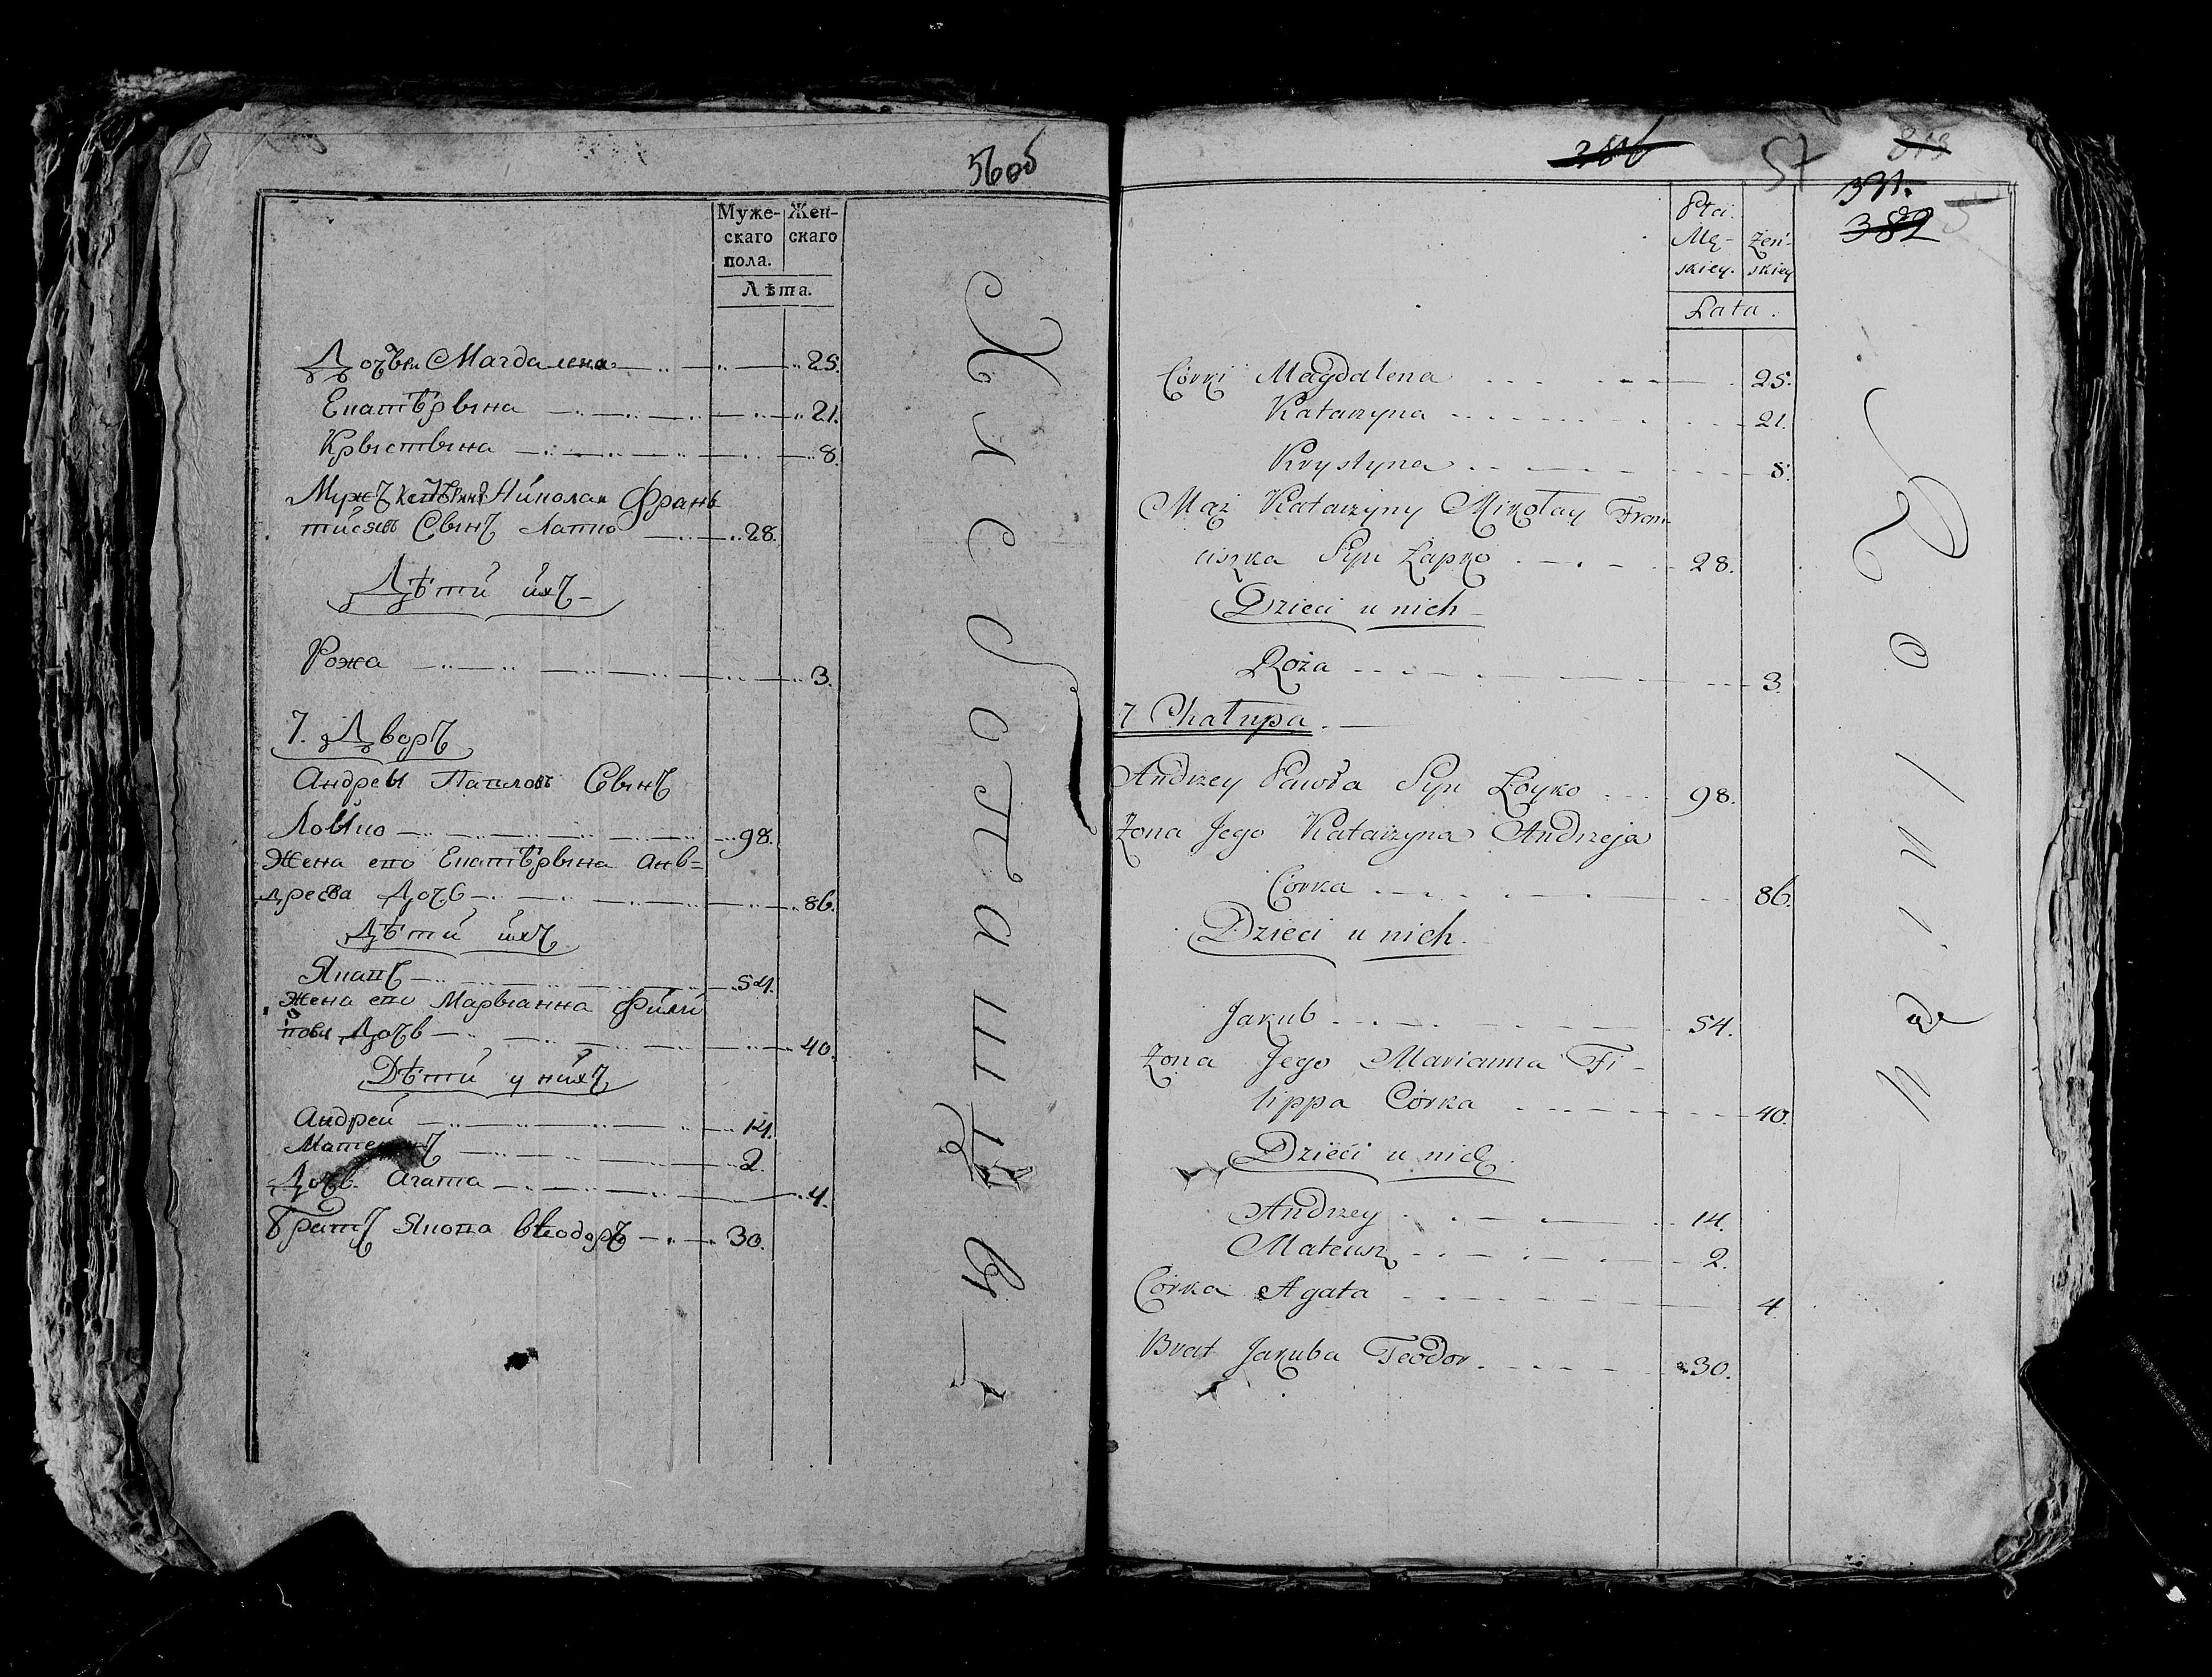 56об
Муже- Жен-
скаго скаго
пола.
Лѣта.
Дочьки Магдалена 25.
Екатѣрына 21.
Крыстына 8.
Мужъ Николай Франь
Сынъ Лапко 28.
Дѣти ихъ
Рожа 3.
7. Дворъ
Андрей Павловъ Сынъ
Лойко 98.
Жена его Екатѣрына Ань=
дреева Дочь 86.
Дѣти ихъ
Якапъ 54.
Жена его Марыанна Фили
пова Дочь 40.
Дѣти у нихъ
Андрей 14.
2.
Дочь. Агата 4.
Братъ Якопа Ѳеодоръ 30.
57
331.
382
Płci
Mę- Żeń-
skiey. skiey
Lata.
Córki Magdalena 25.
Katarzyna 21.
Krystyna 8.
Mąż Katarzyny Mikołay Fran-
ciszka Syn Łapko 28.
Dzieci u nich
Roża 3.
7 Chałupa.
Andrzey Pawła Syn Łoyko 98.
Żona Jego Katarzyna Andrzeja
Corka 86.
Dzieci u nich.
Jakub 54.
Żona Jego Marianna Fi-
lippa Córka 40.
Dzieci u nich.
Andrzey 14.
Mateusz 2.
Córka Agata 4.
Brat Jakuba Teodor. 30.